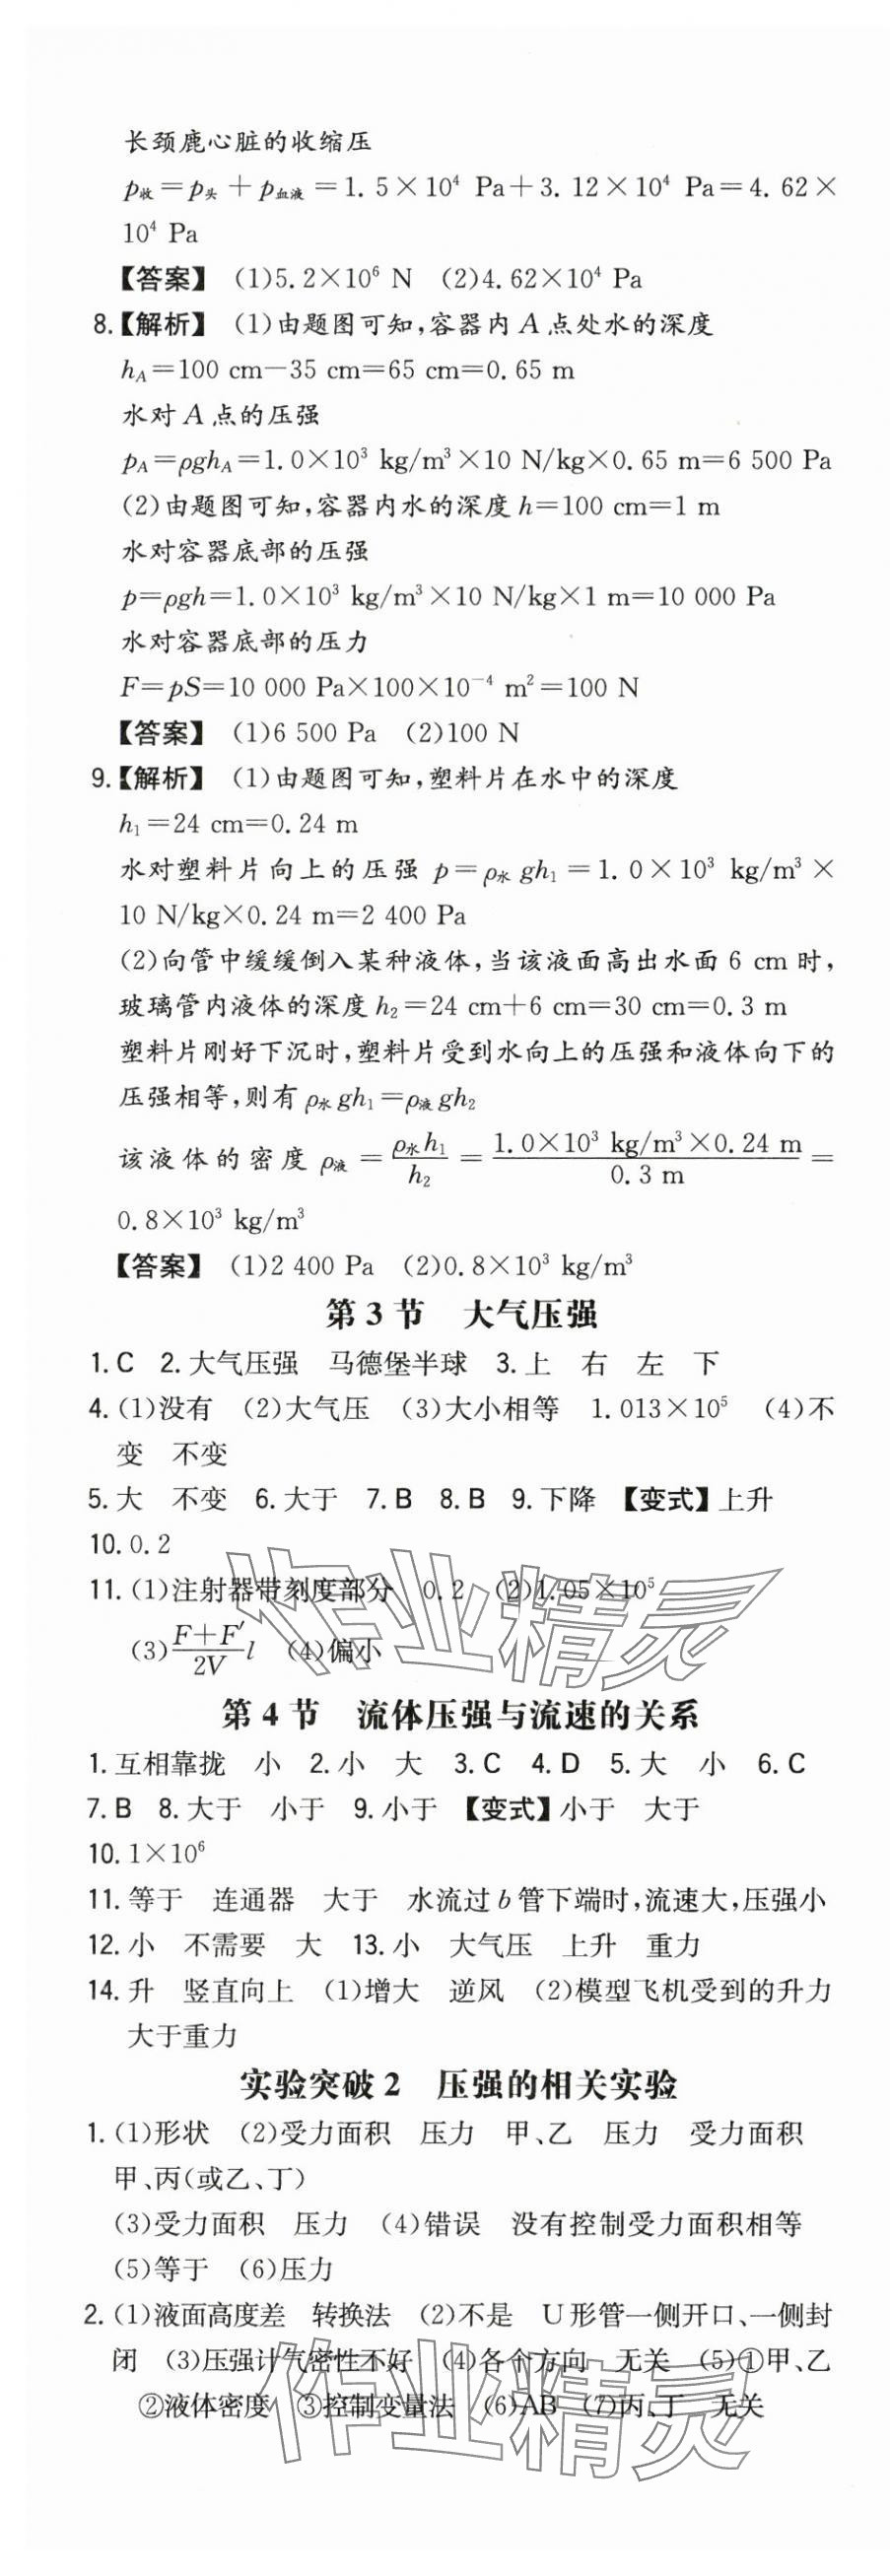 长颈鹿心脏的收缩压
p收=p头+p血液=1.5×10⁴ Pa+3.12×10⁴ Pa=4.62×
10⁴ Pa
【答案】 (1)5.2×10⁶ N (2)4.62×10⁴ Pa
8.【解析】 (1)由题图可知,容器内A点处水的深度
hA=100 cm-35 cm=65 cm=0.65 m
水对A点的压强
pA=ρghA=1.0×10³ kg/m³×10 N/kg×0.65 m=6 500 Pa
(2)由题图可知,容器内水的深度h=100 cm=1 m
水对容器底部的压强
p=ρgh=1.0×10³ kg/m³×10 N/kg×1 m=10 000 Pa
水对容器底部的压力
F=pS=10 000 Pa×100×10⁻⁴ m²=100 N
【答案】 (1)6 500 Pa (2)100 N
9.【解析】 (1)由题图可知,塑料片在水中的深度
h₁=24 cm=0.24 m
水对塑料片向上的压强 p=ρ水gh₁=1.0×10³ kg/m³×
10 N/kg×0.24 m=2 400 Pa
(2)向管中缓缓倒入某种液体,当该液面高出水面6 cm时,
玻璃管内液体的深度h₂=24 cm+6 cm=30 cm=0.3 m
塑料片刚好下沉时,塑料片受到水向上的压强和液体向下的
压强相等,则有ρ水gh₁=ρ液gh₂
该液体的密度 ρ液=ρ水h₁/h₂=1.0×10³ kg/m³×0.24 m/0.3 m=
0.8×10³ kg/m³
【答案】 (1)2 400 Pa (2)0.8×10³ kg/m³
第3节 大气压强
1.C 2.大气压强 马德堡半球 3.上 右 左 下
4.(1)没有 (2)大气压 (3)大小相等 1.013×10⁵ (4)不
变 不变
5.大 不变 6.大于 7.B 8.B 9.下降 【变式】上升
10.0.2
11.(1)注射器带刻度部分 0.2 (2)1.05×10⁵
(3)(F+F′)/2V l (4)偏小
第4节 流体压强与流速的关系
1.互相靠拢 小 2.小 大 3.C 4.D 5.大 小 6.C
7.B 8.大于 小于 9.小于 【变式】小于 大于
10.1×10⁶
11.等于 连通器 大于 水流过b管下端时,流速大,压强小
12.小 不需要 大 13.小 大气压 上升 重力
14.升 竖直向上 (1)增大 逆风 (2)模型飞机受到的升力
大于重力
实验突破2 压强的相关实验
1.(1)形状 (2)受力面积 压力 甲、乙 压力 受力面积
甲、丙(或乙、丁)
(3)受力面积 压力 (4)错误 没有控制受力面积相等
(5)等于 (6)压力
2.(1)液面高度差 转换法 (2)不是 U形管一侧开口、一侧封
闭 (3)压强计气密性不好 (4)各个方向 无关 (5)①甲、乙
②液体密度 ③控制变量法 (6)AB (7)丙、丁 无关
作业精灵
作业精灵